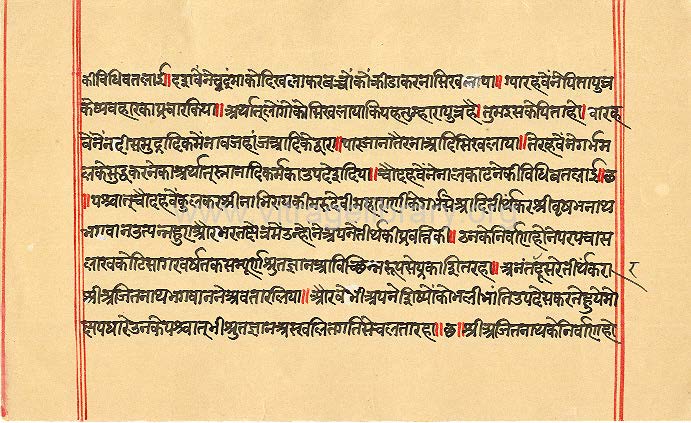 की विधि बतलाई॥ दशवें ने चंद्रमा को दिखलाकर बच्चों को क्रीडा करना सिखलाया॥ ग्यारहवें ने पिता पुत्र
के व्यवहार का प्रचार किया॥ अर्थात् लोगों को सिखलाया कि यह तुम्हारा पुत्र है। तुम इसके पिता हो॥ बारह
वें ने नदी समुद्रादिक में नाव जहांज आदि के द्वारा॥ पार जाना तैरना आदि सिखलाया॥ तेरहवें ने गर्भ म
ल के शुद्ध करने का अर्थात् स्नानादि कर्म का उपदेश दिया॥ चौदहवें ने नाल काटने की विधि बतलाई॥ छ
॥ पश्चात् चौदहवें कुलकर श्री नाभिराय की मरुदेवी महाराणी के गर्भ से आदि तीर्थंकर श्री वृषभनाथ
भगवान उत्पन्न हुए॥ और भरतक्षेत्र में उन्होंने अपने तीर्थ की प्रवृत्ति की॥ उनके निर्वाण होने पर पचास
लाख कोटि सागर वर्ष तक सम्पूर्ण श्रुतज्ञान अविच्छिन्न रूप से प्रकाशित रहा॥ अनंतर दूसरे तीर्थंकर
श्री अजितनाथ भगवान ने अवतार लिया॥ और वे भी अपने शिष्यों को भली भांति उपदेस करते हुये मो
क्ष पधारे उनके पश्चात् भी श्रुतज्ञान अस्खलित गति से चलता रहा॥ छ॥ श्री अजितनाथ के निर्वाण हो
www.vitragelibrary.org